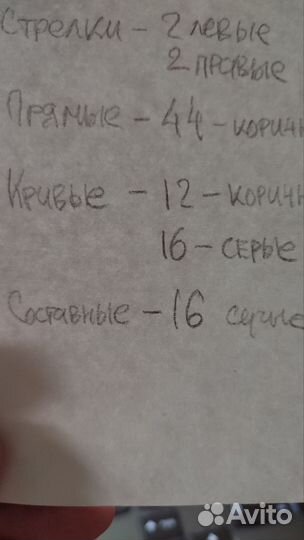 Стрелки – 2 левые
2 правые
Прямые – 44 – коричн
Кривые – 12 – коричн
16 – серые
Составные – 16
Avito